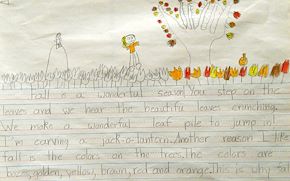 Fall is a wonderful season. You step on the
leaves and we hear the beautiful leaves crunching.
We make a wonderful leaf pile to jump in!
I'm carving a jack-o-lantern. Another reason I like
fall is the colors on the trees. The colors are
golden, yellow, brown, red and orange. This is why fall